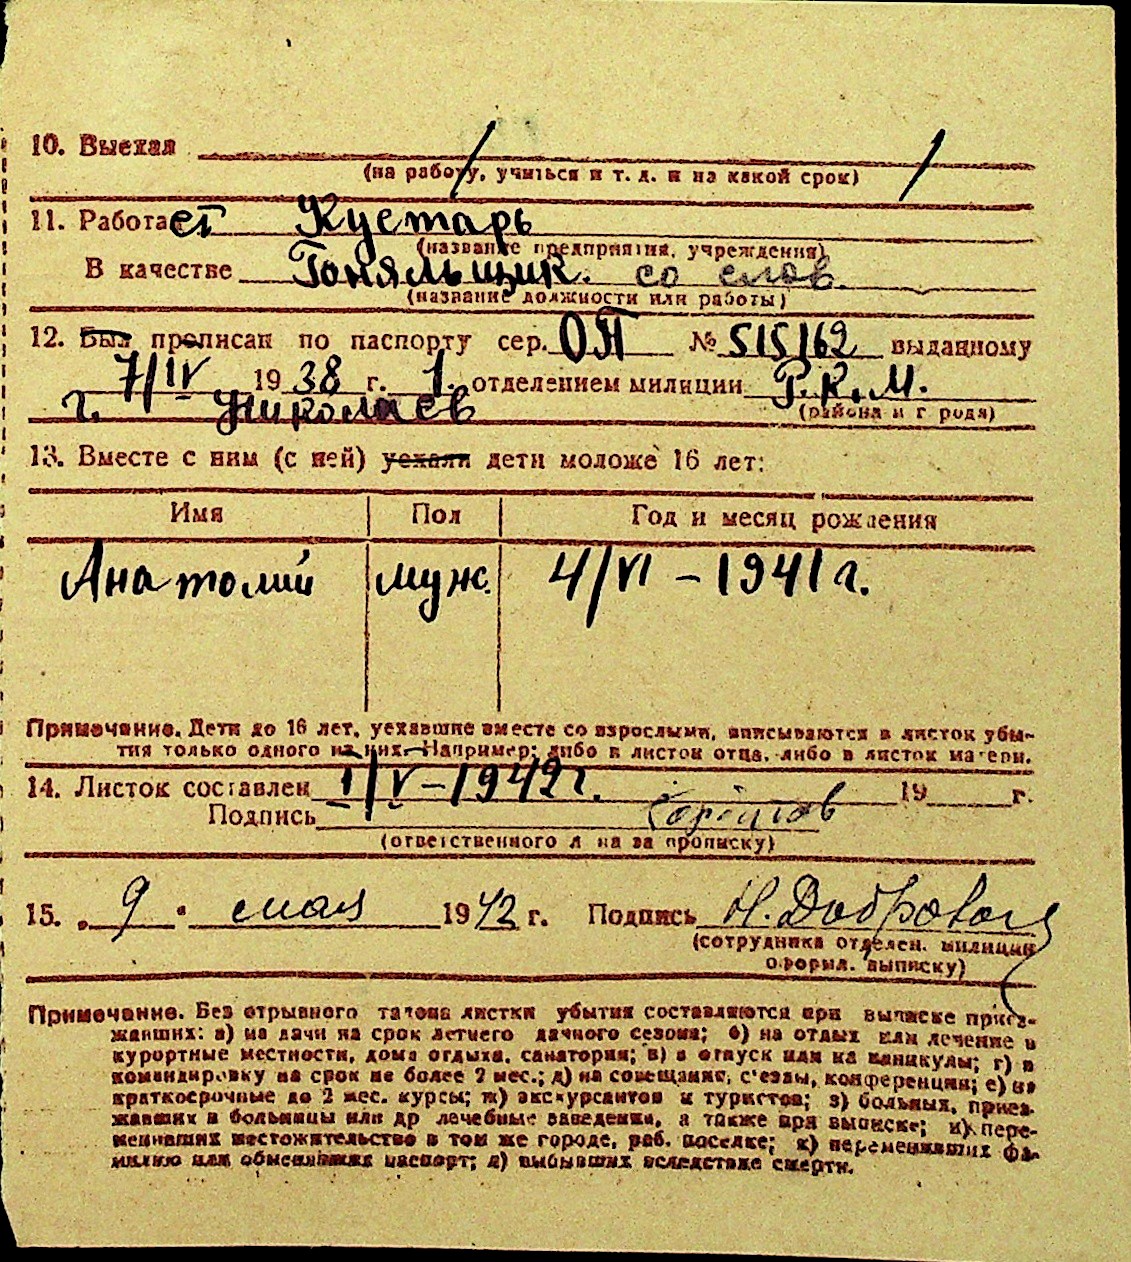 10. Выехал
(на работу, учиться и т. д. и на какой срок)
11. Работает Кустарь
(название предприятия, учреждения)
В качестве Гоняльщик. со слов.
(название должности или работы)
12. Был прописан по паспорту сер. ОП № 515162 выданному
7/IV 1938 г. 1. отделением милиции Р.К.М.
г. Николаев (района и города)
13. Вместе с ним (с ней) уехали дети моложе 16 лет:
Имя Пол Год и месяц рождения
Анатолий муж. 4/VI – 1941 г.
Примечание. Дети до 16 лет, уехавшие вместе со взрослыми, вписываются в листок убы-
тия только одного из них. Например: либо в листок отца, либо в листок матери.
14. Листок составлен 1/V – 1942 г. 19 г.
Подпись
(ответственного л на за прописку)
15. „9" мая 1942 г. Подпись Н. Добровол
(сотрудника отделен. милиции
оформл. выписку)
Примечание. Без отрывного талона листки убытия составляются при выписке приез-
жавших: а) на дачи на срок летнего дачного сезона; б) на отдых или лечение в
курортные местности, дома отдыха, санатории; в) в отпуск или на каникулы; г) в
командировку на срок не более 2 мес.; д) на совещание, с'езды, конференции; е) на
краткосрочные до 2 мес. курсы; ж) экскурсантов и туристов; з) больных, приез-
жавших в больницы или др лечебные заведения, а также при выписке; и) пере-
менивших местожительство в том же городе, раб. поселке; к) переменивших фа-
милию или обменявших паспорт; л) выбывших вследствие смерти.